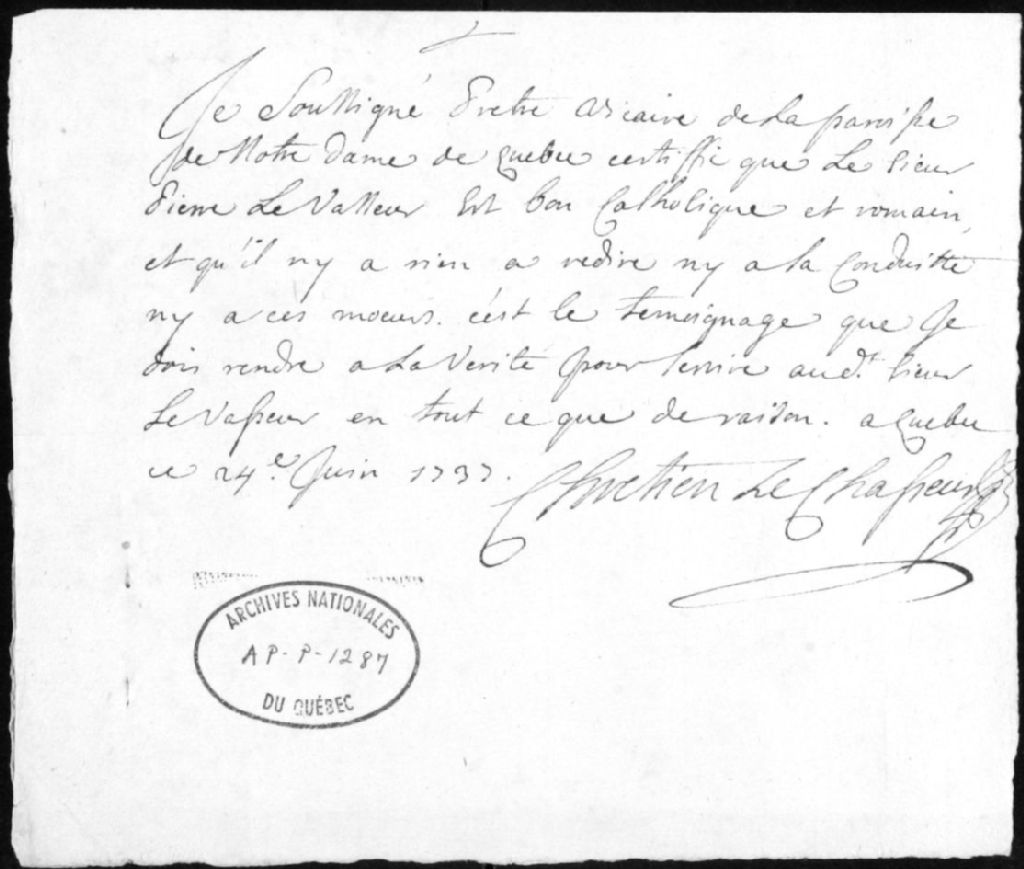 Je Soussigné Pretre vicaire de La paroisse
de Notre Dame de quebec certiffie que Le sieur
Pierre Le Vasseur Est bon Catholique et romain,
et qu'il ny a rien a redire ny a la Conduitte
ny a ces moeurs. c'est le temoignage que Je
dois rendre a La Verité pour servire aud.t sieur
Le Vasseur en tout ce que de raison. a quebec
ce 24.e Juin 1737.
Chretien Le Chasseur
ARCHIVES NATIONALES
AP-P-1287
DU QUÉBEC